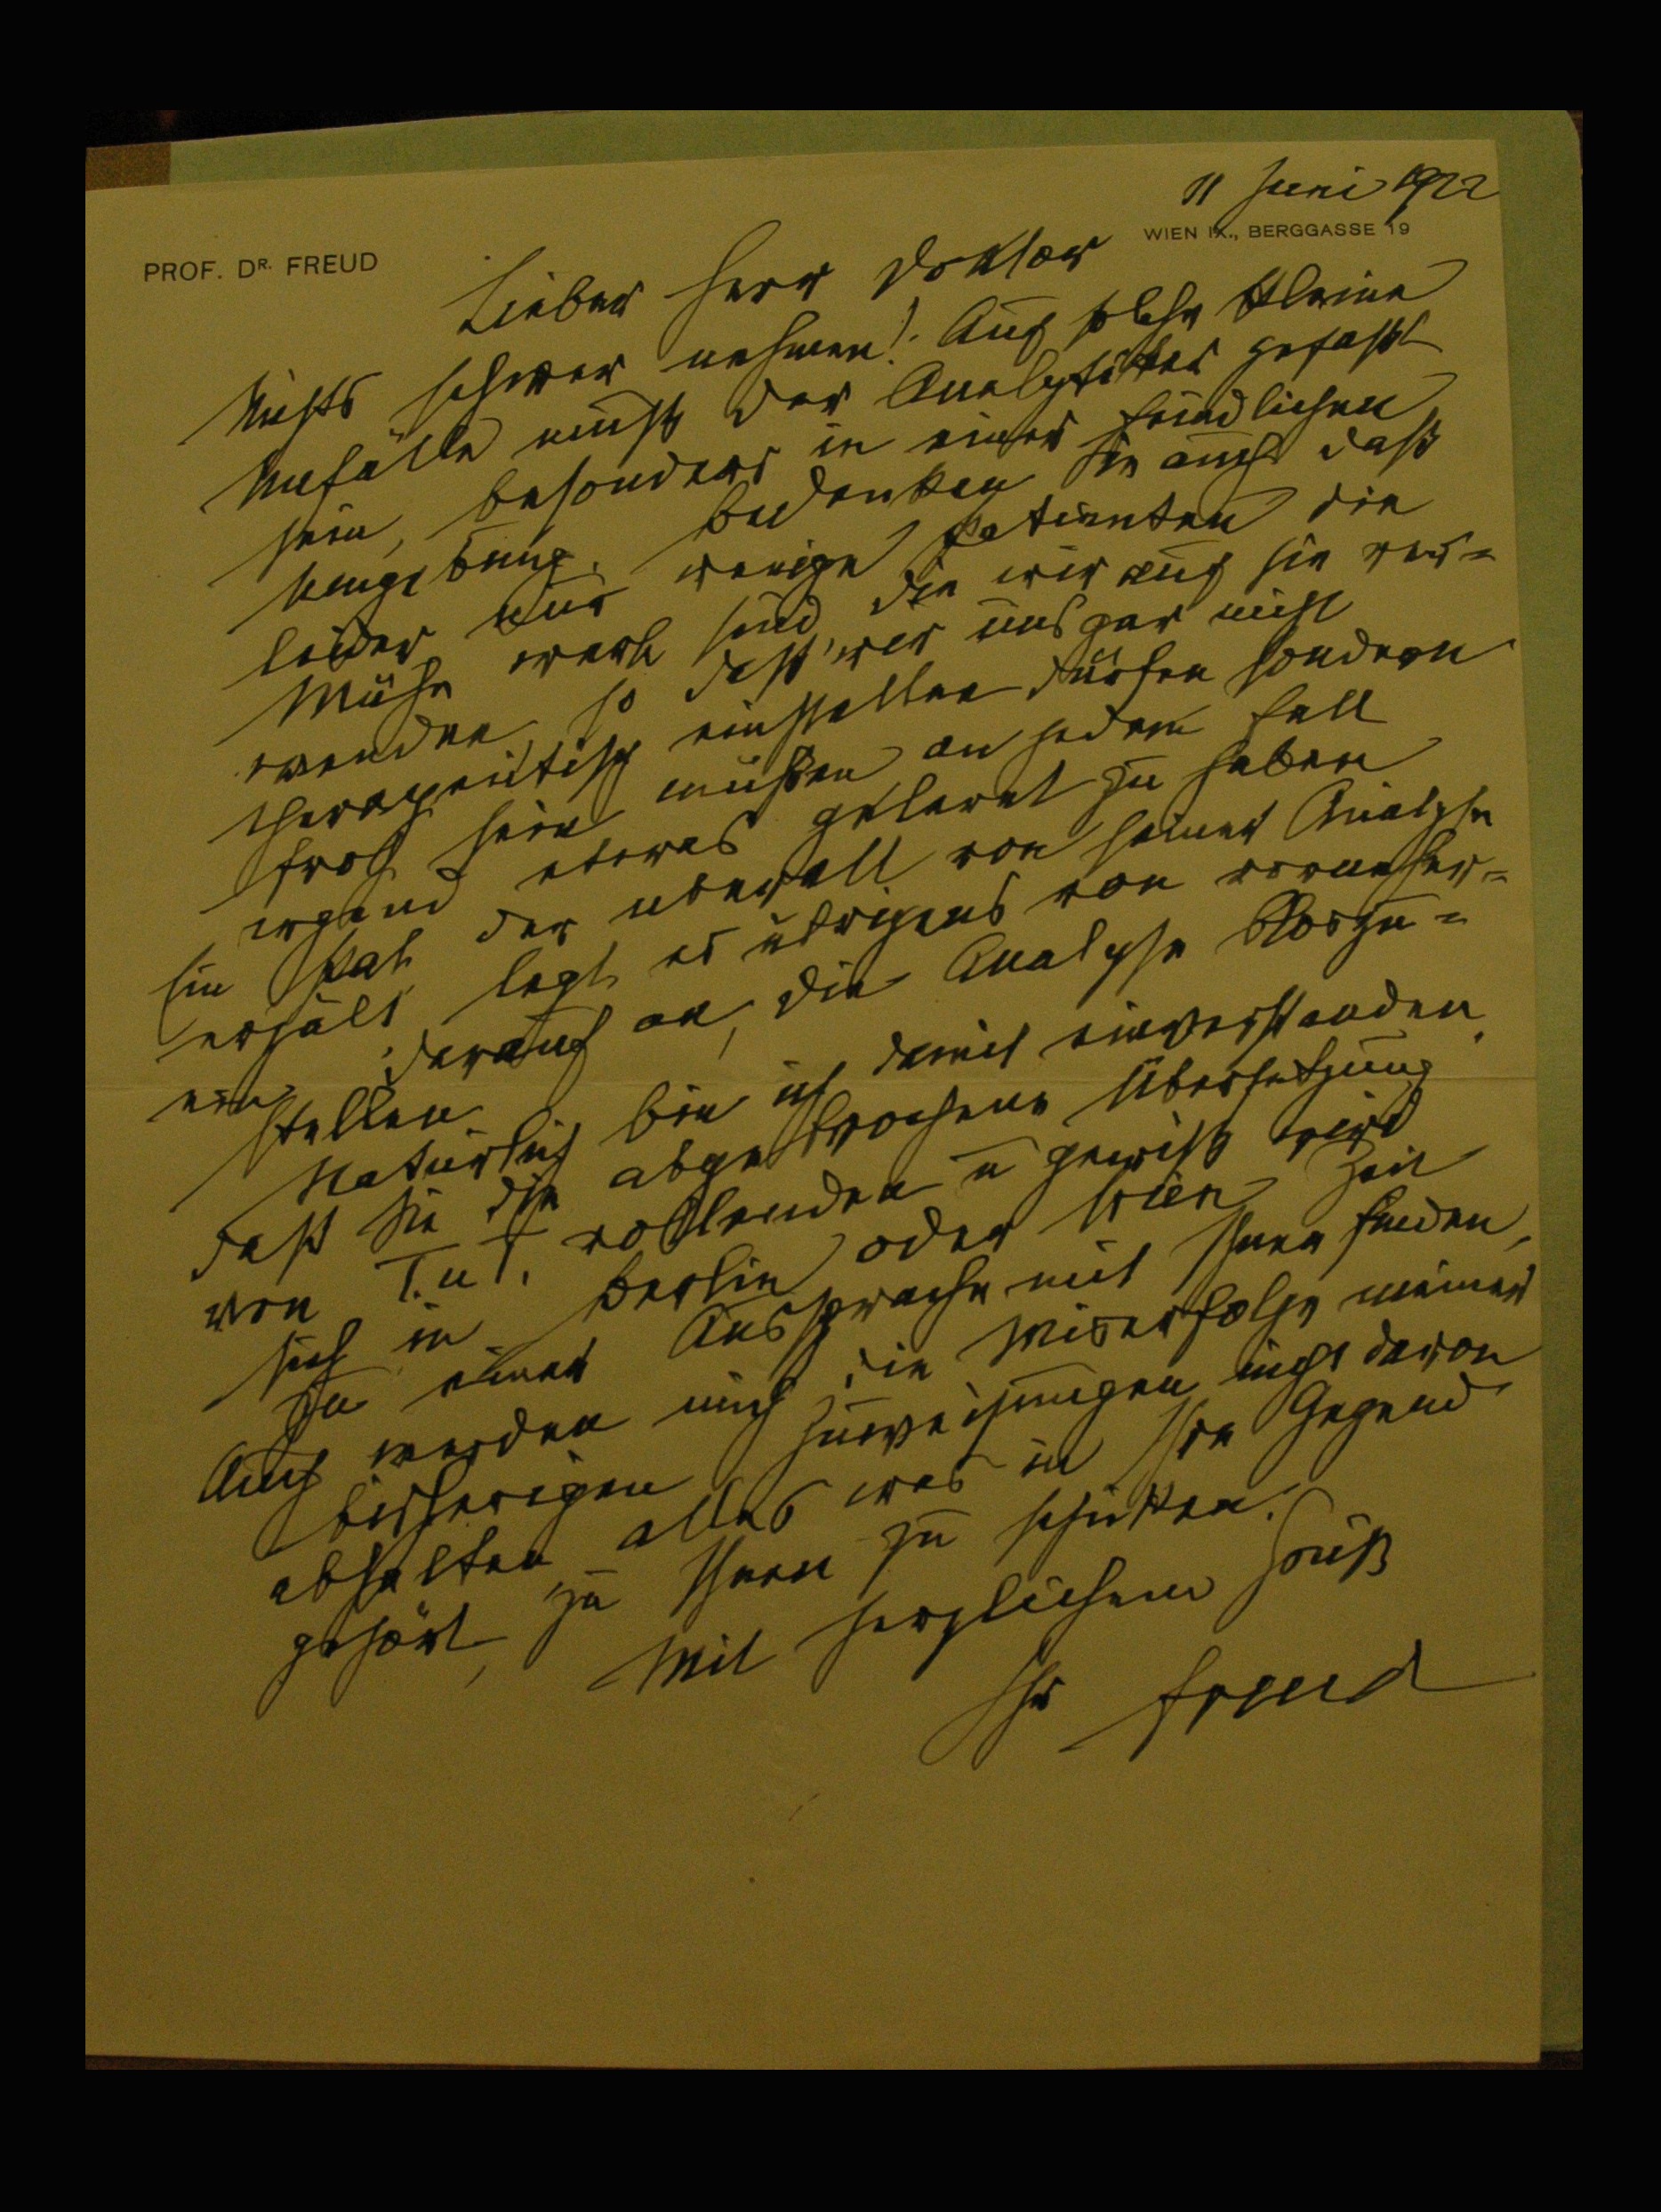 11 Juni 1922
WIEN IX., BERGGASSE 19
PROF. DR. FREUD
Lieber Herr Doktor
Nichts schwer nehmen! Auf solche kleine
Unfälle muß der Analytiker gefaßt
sein, besonders in einer feindlichen
Umgebung. Bedenken Sie auch daß
leider nur wenige Patienten die
Mühe wert sind, die wir auf sie ver=
wenden, so daß wir uns gar nicht
therapeutisch einstellen dürfen sondern
froh sein müssen an jedem Fall
irgend etwas gelernt zu haben
Ein Pat. der überall von seiner Analyse
erzält, legt es übrigens von vorneher=
ein darauf an, die Analyse bloszu=
stellen.
Natürlich bin ich damit einverstanden
daß Sie die abgebrochene Übersetzung
von T.u T. vollenden u gewiß wird
sich in Berlin oder Wien Zeit
zu einer Aussprache mit Ihnen finden,
Auch werden mich die Miserfolge meiner
bisherigen Zuweisungen nicht davon
abhalten alles was in Ihre Gegend
gehört, zu Ihnen zu schicken.
Mit herzlichem Gruß
Ihr Freud